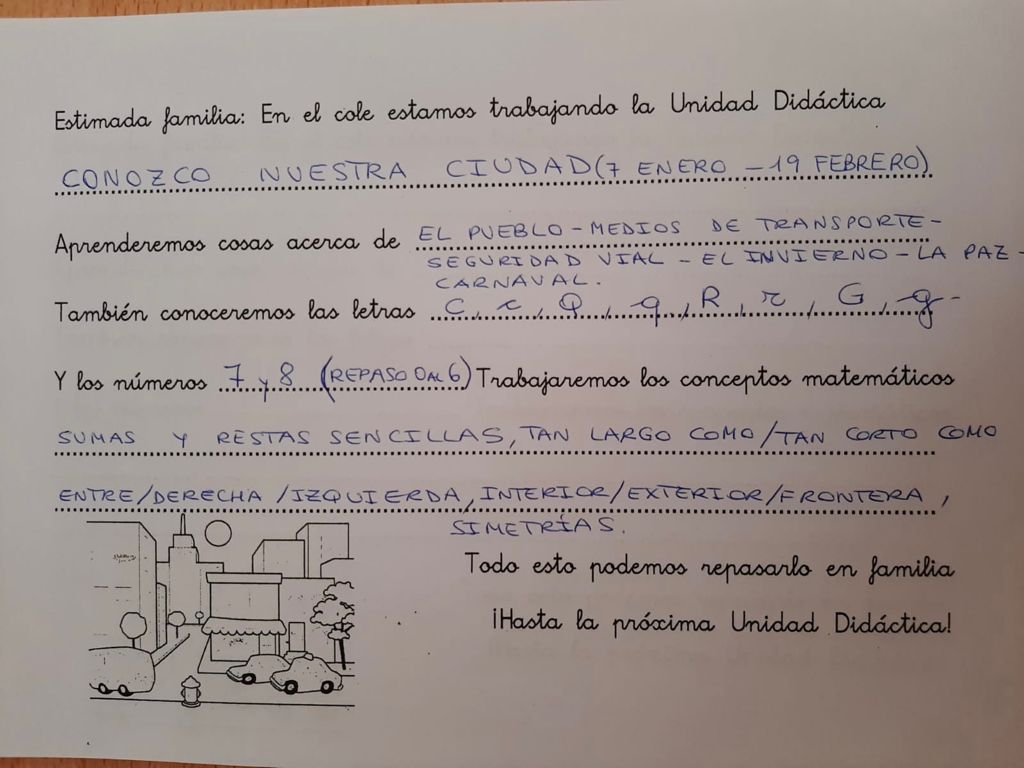 Estimada familia: En el cole estamos trabajando la Unidad Didáctica
CONOZCO NUESTRA CIUDAD (7 ENERO - 19 FEBRERO)
Aprenderemos cosas acerca de EL PUEBLO - MEDIOS DE TRANSPORTE -
SEGURIDAD VIAL - EL INVIERNO - LA PAZ -
CARNAVAL.
También conoceremos las letras C, c, Q, q, R, r, G, g -
Y los números 7 y 8 (REPASO 0 AL 6) Trabajaremos los conceptos matemáticos
SUMAS Y RESTAS SENCILLAS, TAN LARGO COMO/TAN CORTO COMO
ENTRE/DERECHA/IZQUIERDA, INTERIOR/EXTERIOR/FRONTERA,
SIMETRÍAS.
Todo esto podemos repasarlo en familia
¡Hasta la próxima Unidad Didáctica!